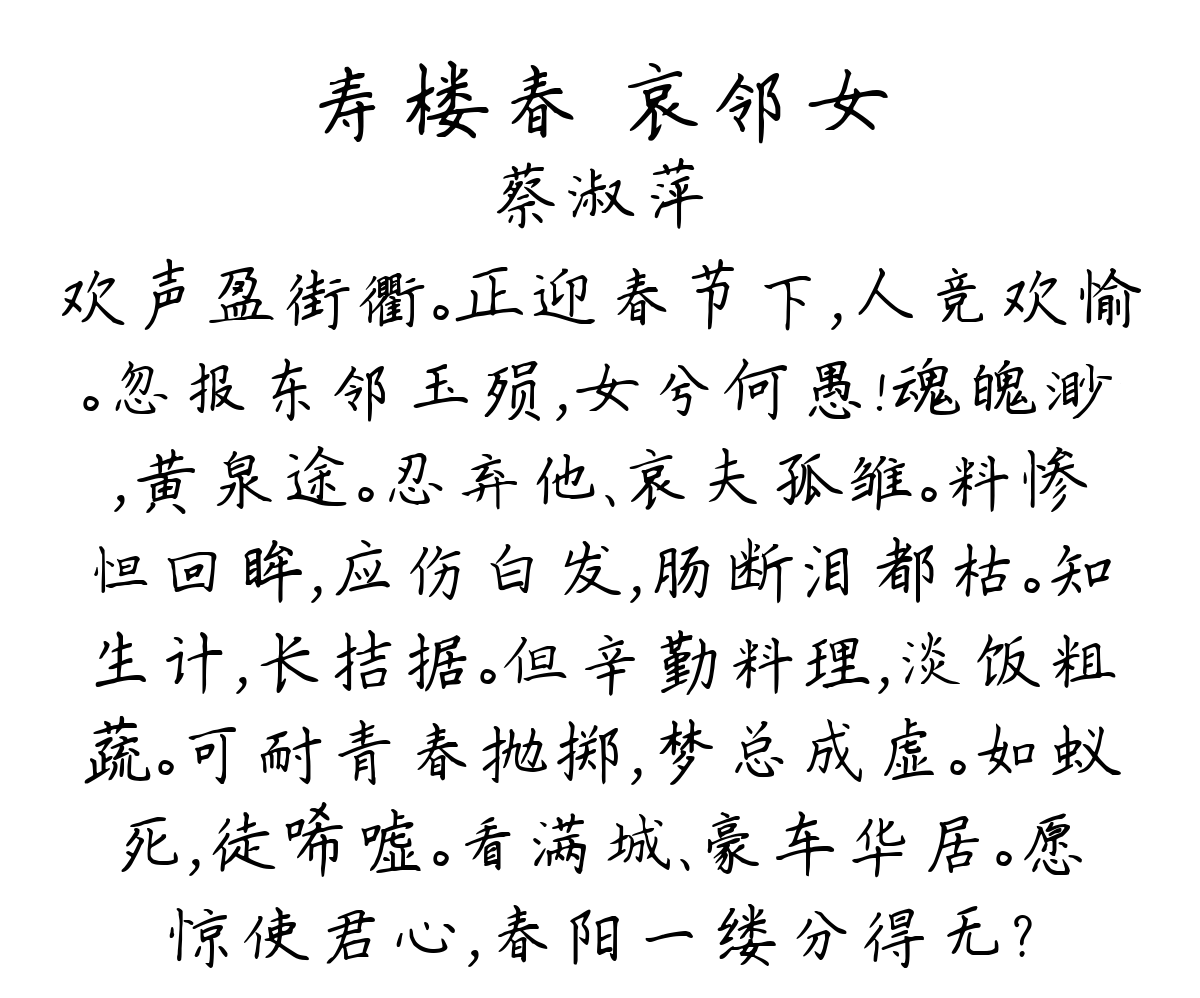 寿楼春 哀邻女
蔡淑萍
欢声盈街衢。正迎春节下,人竞欢愉
。忽报东邻玉殒,女兮何愚!魂魄渺
,黄泉途。忍弃他、哀夫孤雏。料惨
怛回眸,应伤白发,肠断泪都枯。知
生计,长拮据。但辛勤料理,淡饭粗
蔬。可耐青春抛掷,梦总成虚。如蚁
死,徒唏嘘。看满城、豪车华居。愿
惊使君心,春阳一缕分得无?